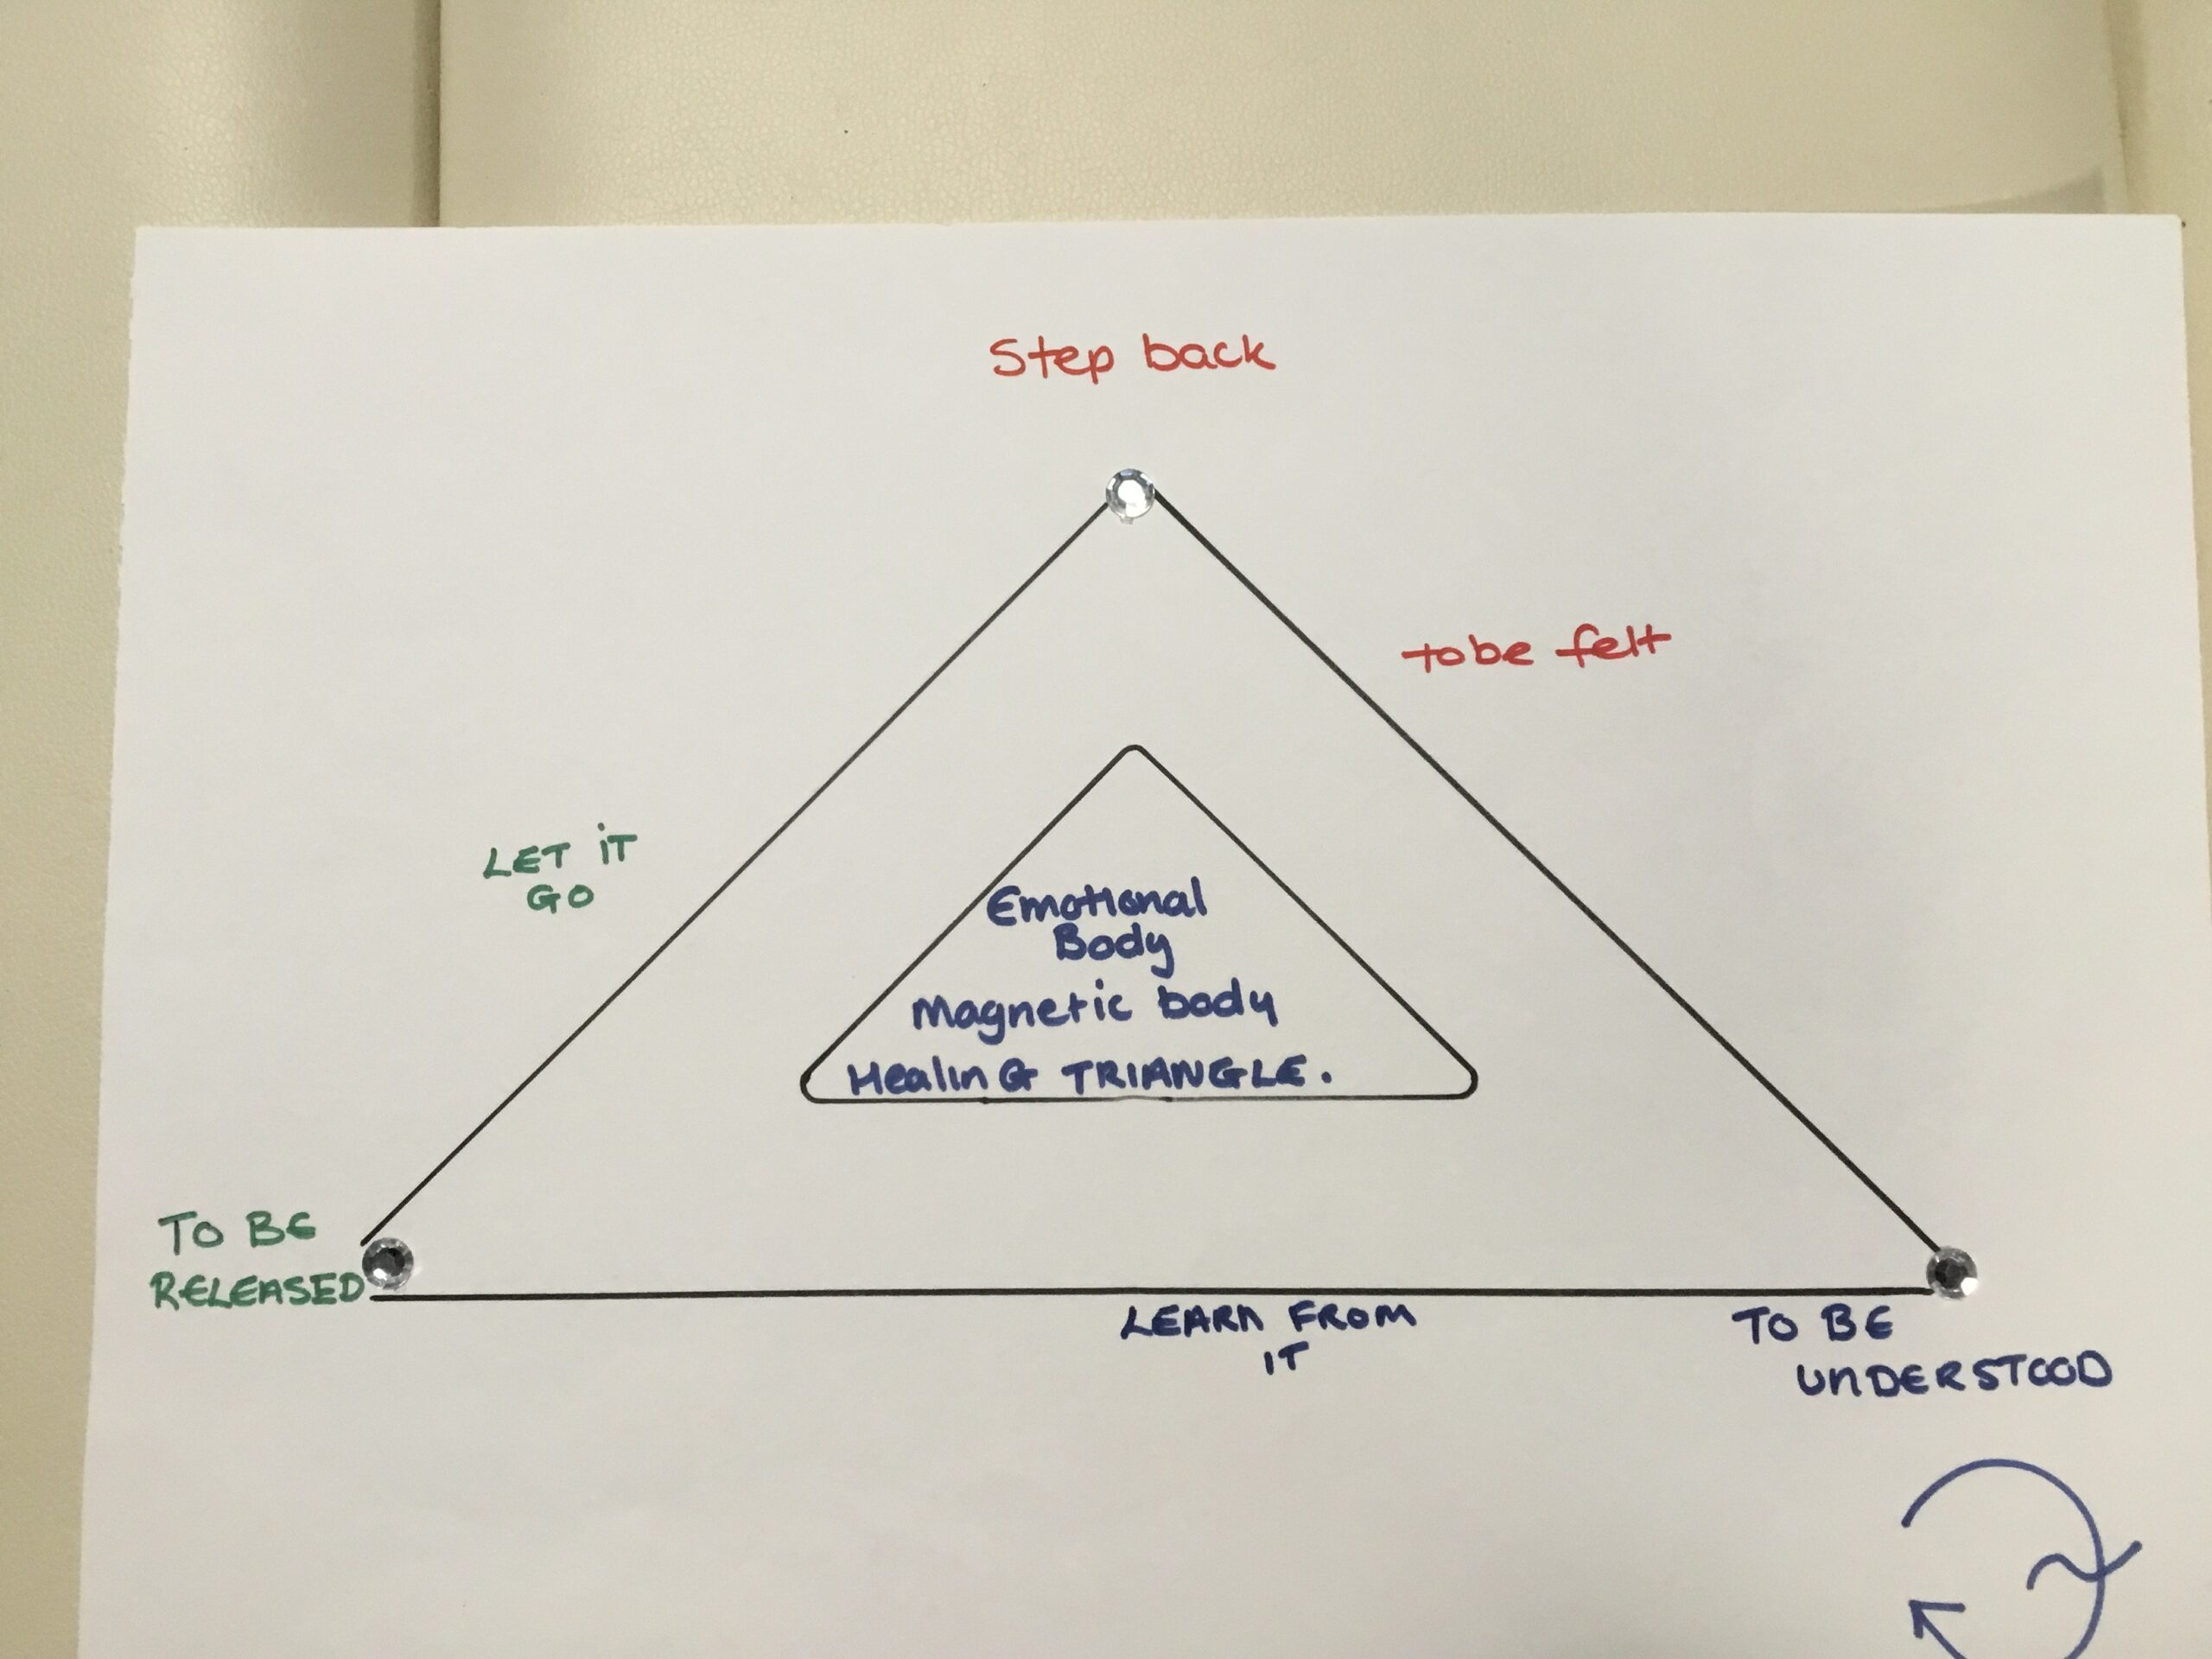 Step back
to be felt
LET iT
GO
Emotional
Body
Magnetic body
HealinG TRIANGLE.
TO BE
RELEASED
LEARN FROM
IT
TO BE
UNDERSTOOD